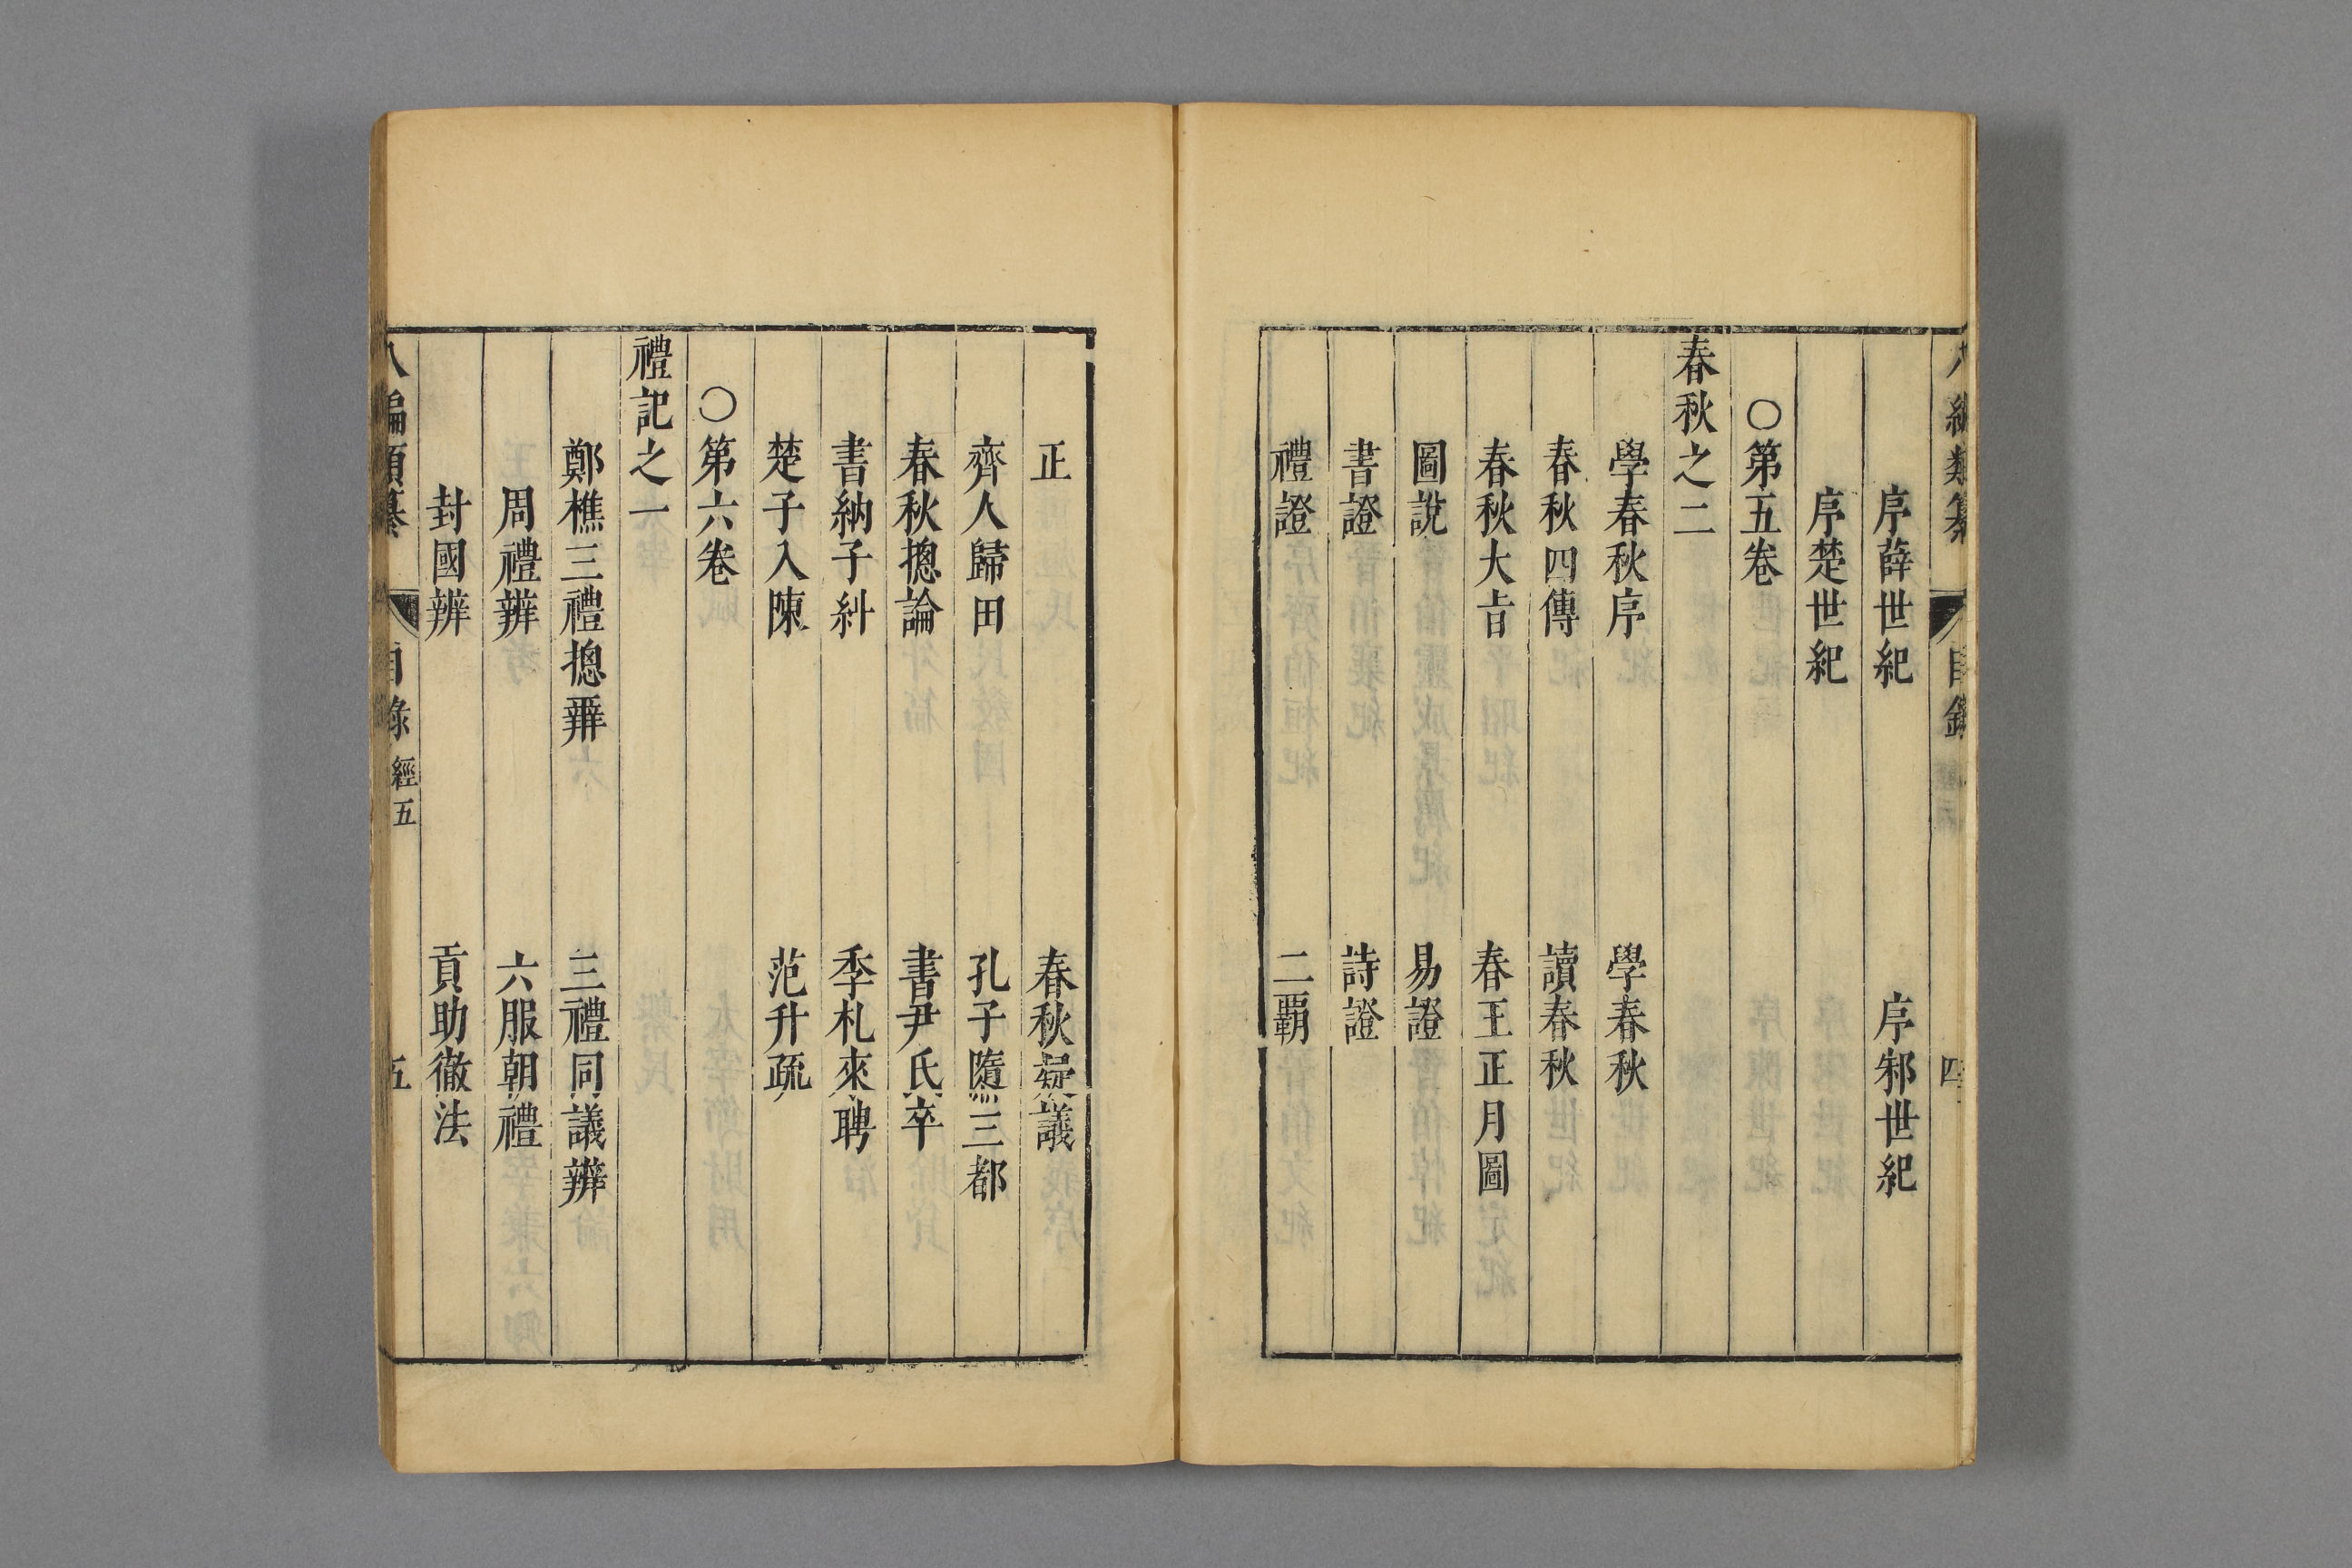 八編類纂 目錄 四
序薛世紀 序邾世紀
序楚世紀
○第五卷
春秋之二
學春秋序 學春秋
春秋四傳 讀春秋
春秋大㫖 春王正月圖
圖說 易證
書證 詩證
禮證 二覇
正 春秋疑議
齊人歸田 孔子隳三都
春秋摠論 書尹氏卒
書納子糾 季札來聘
楚子入陳 范升疏
○第六卷
禮記之一
鄭樵三禮摠辨 三禮同議辨
周禮辨 六服朝禮
封國辨 貢助徹法
八編類纂 目錄 經五 五